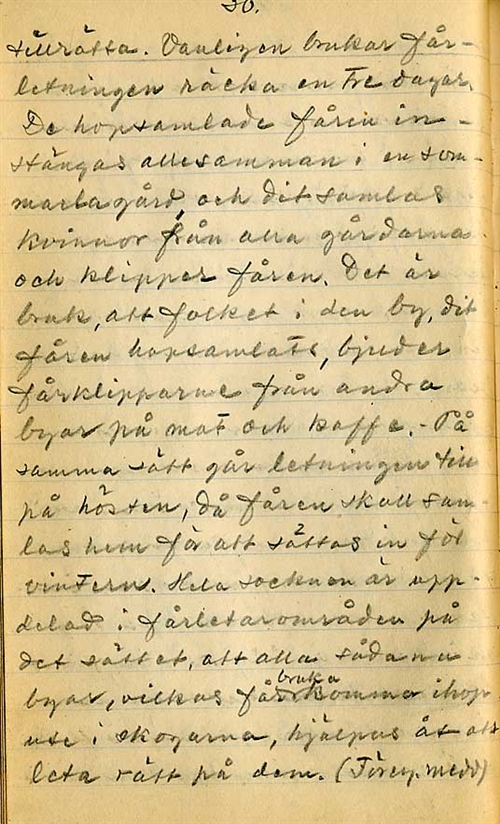 30.
tillrätta. Vanligen brukar får-
letningen räcka en tre dagar.
De hopsamlade fåren in-
stängas allesamman i en som-
marlagård, och dit samlas
kvinnor från alla gårdarna
och klipper fåren. Det är
bruk, att folket i den by, dit
fåren hopsamlats, bjuder
fårklipparne från andra
byar på mat och kaffe. - På
samma sätt går letningen till
på hösten, då fåren skall sam-
las hem för att sättas in för
vintern. Hela socknen är upp-
delad i fårletarområden på
det sättet, att alla sådana
byar, vilkas får bruka komma ihop
ute i skogarna, hjälpas åt att
leta rätt på dem. (Föreg. medd)